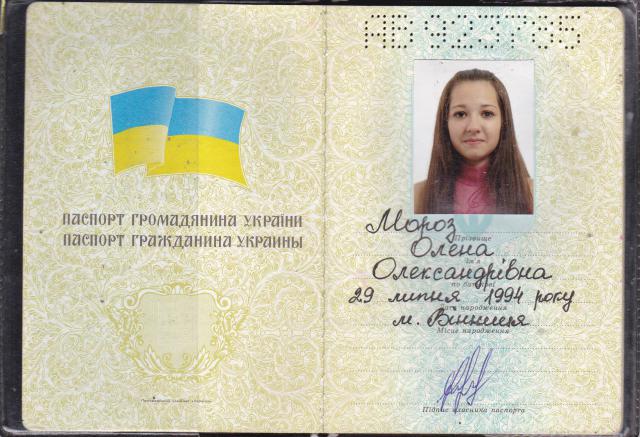 ПАСПОРТ ГРОМАДЯНИНА УКРАЇНИ
ПАСПОРТ ГРАЖДАНИНА УКРАИНЫ
Мороз
Прізвище
Олена
Ім'я
Олександрівна
по батькові
29 липня 1994 року
Дата народження
м. Вінниця
Місце народження
Підпис власника паспорта